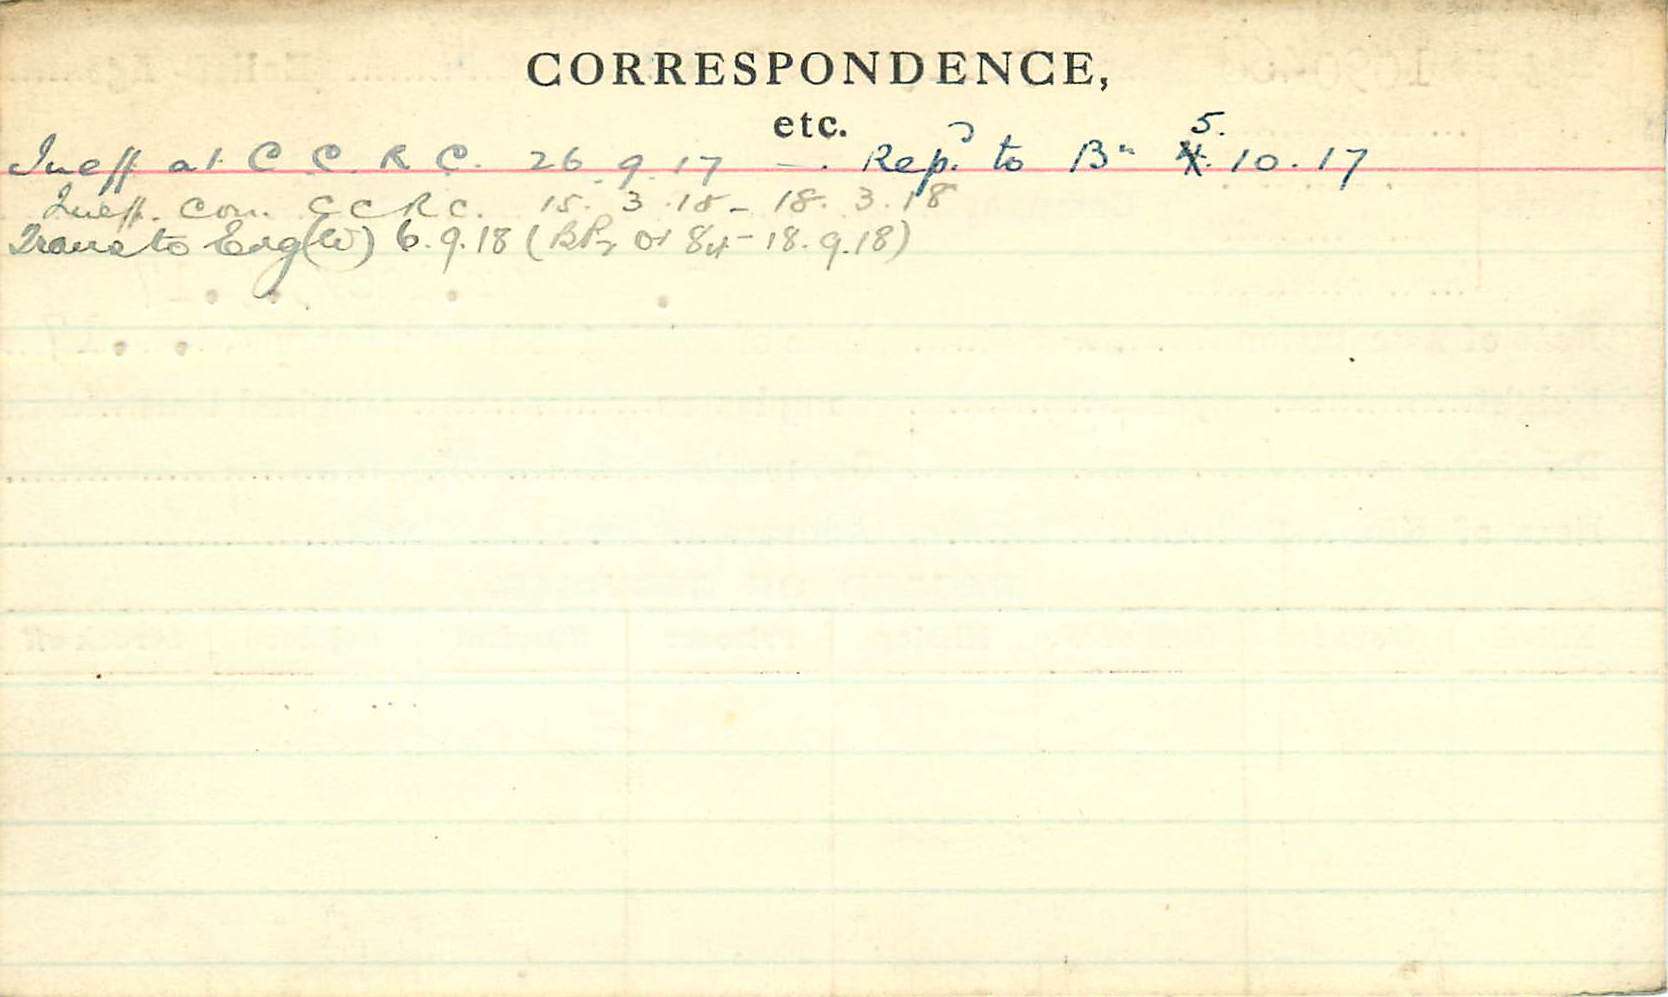 CORRESPONDENCE,
etc.
Ineff at C C R C. 26.9.17 —. Rep.d to Bn 5. 10.17
Ineff. Con. C C R C. 15. 3.18 - 18. 3.18
Trans to Eng (W) 6.9.18 ( 84 - 18.9.18)